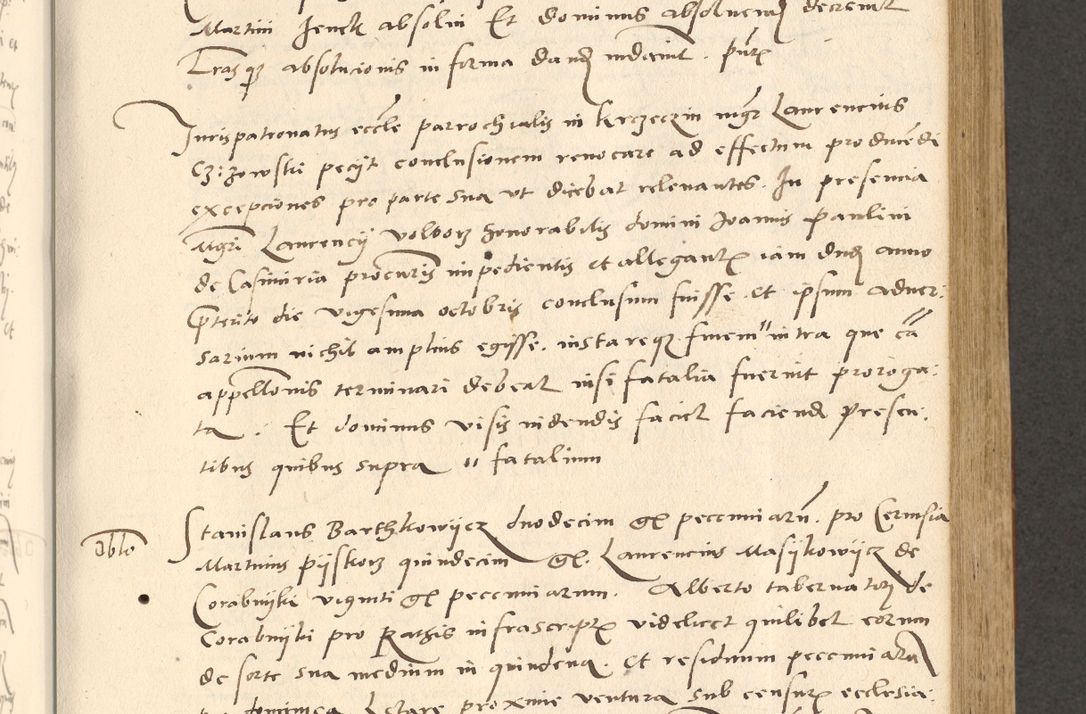 Martini Jenck absolvi Et dominus absoluendum decrevit
Lrasqz absolucionis in forma dandas indecrevit. pntibus
Jurispatronatus eccle parrochialis in Krzeczin mgr Laurencius
Czizowski peciit conclusionem renocare ad effectum producendi
excepciones pro parte sua ut dicebat relenantes. In presencia
Mgri Laurencij Volborz honorabilis domini Joannis Paulini
de Casimiria procuris impedientis et allegantis iam dudum anno
preterito die vigesima octobris conclusum fuisse. et ipsum adver:
sarium nichil amplius egisse. instareqz finem intra que cā
appellonis terminari debeat nisi fatalia fuerint proroga:
ta. Et dominus visis videndis faciet faciendum presen:
tibus quibus supra " fatalium
oblo
Stanislaus Barthkowijcz duodecim gr pecuniarū. pro Cermsia
Martinus Pijskorz quindecim gr. Laurencius Masijkowijcz de
Corabnijki viginti gr pecuniarum. Alberto tabernatori de
Corabnijki pro Rathis infrascriptis videlicet quilibet eorum
de sorte sua medium in quindena. et residuum pecuniarū
dominica Letare proxime ventura sub censuris ecclesia: